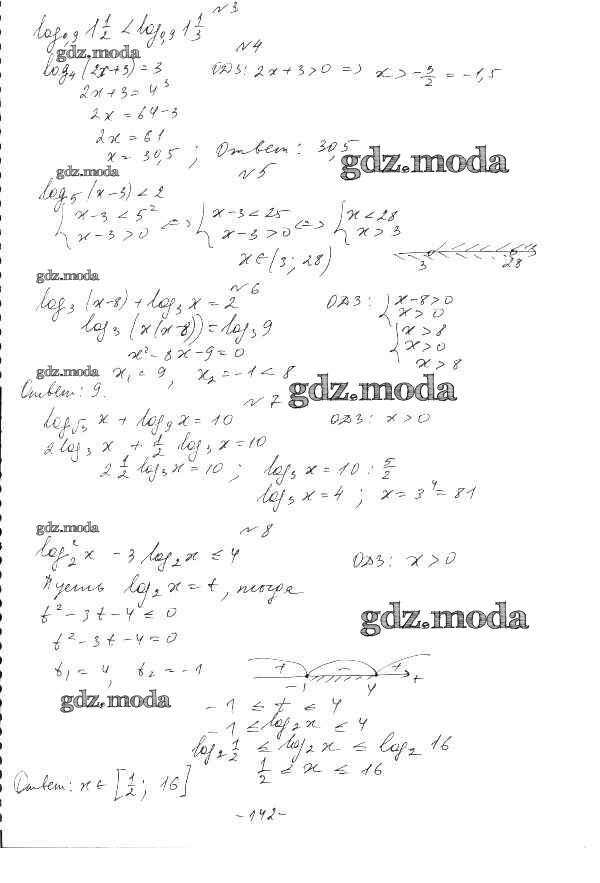 №3
log₀,₉ 1 1/2 < log₀,₉ 1 1/3
№4
gdz.moda
log₄(2x+3) = 3 ОДЗ: 2x+3>0 => x > -3/2 = -1,5
2x+3 = 4³
2x = 64-3
2x = 61
x = 30,5 ; Ответ: 30,5
gdz.moda
gdz.moda
№5
log₅(x-3) < 2
{x-3 < 5² <=> {x-3 < 25 <=> {x < 28
x-3 > 0 x-3 > 0 x > 3
x ∈ (3; 28)
3 28
gdz.moda
№6
log₃(x-8) + log₃ x = 2 ОДЗ: {x-8>0
x>0
log₃(x(x-8)) = log₃ 9 {x>8
x>0
x² - 8x - 9 = 0
x>8
gdz.moda x₁ = 9, x₂ = -1 < 8
Ответ: 9.
gdz.moda
№7
log√₃ x + log₉ x = 10 ОДЗ: x>0
2 log₃ x + 1/2 log₃ x = 10
2 1/2 log₃ x = 10 ; log₃ x = 10 : 5/2
log₃ x = 4 ; x = 3⁴ = 81
gdz.moda
№8
log₂² x - 3 log₂ x ≤ 4 ОДЗ: x>0
Пусть log₂ x = t, тогда
t² - 3t - 4 ≤ 0
gdz.moda
t² - 3t - 4 = 0
t₁ = 4, t₂ = -1
+ - +
-1 4 t
gdz.moda
-1 ≤ t ≤ 4
-1 ≤ log₂ x ≤ 4
log₂ 1/2 ≤ log₂ x ≤ log₂ 16
1/2 ≤ x ≤ 16
Ответ: x ∈ [1/2; 16]
-142-